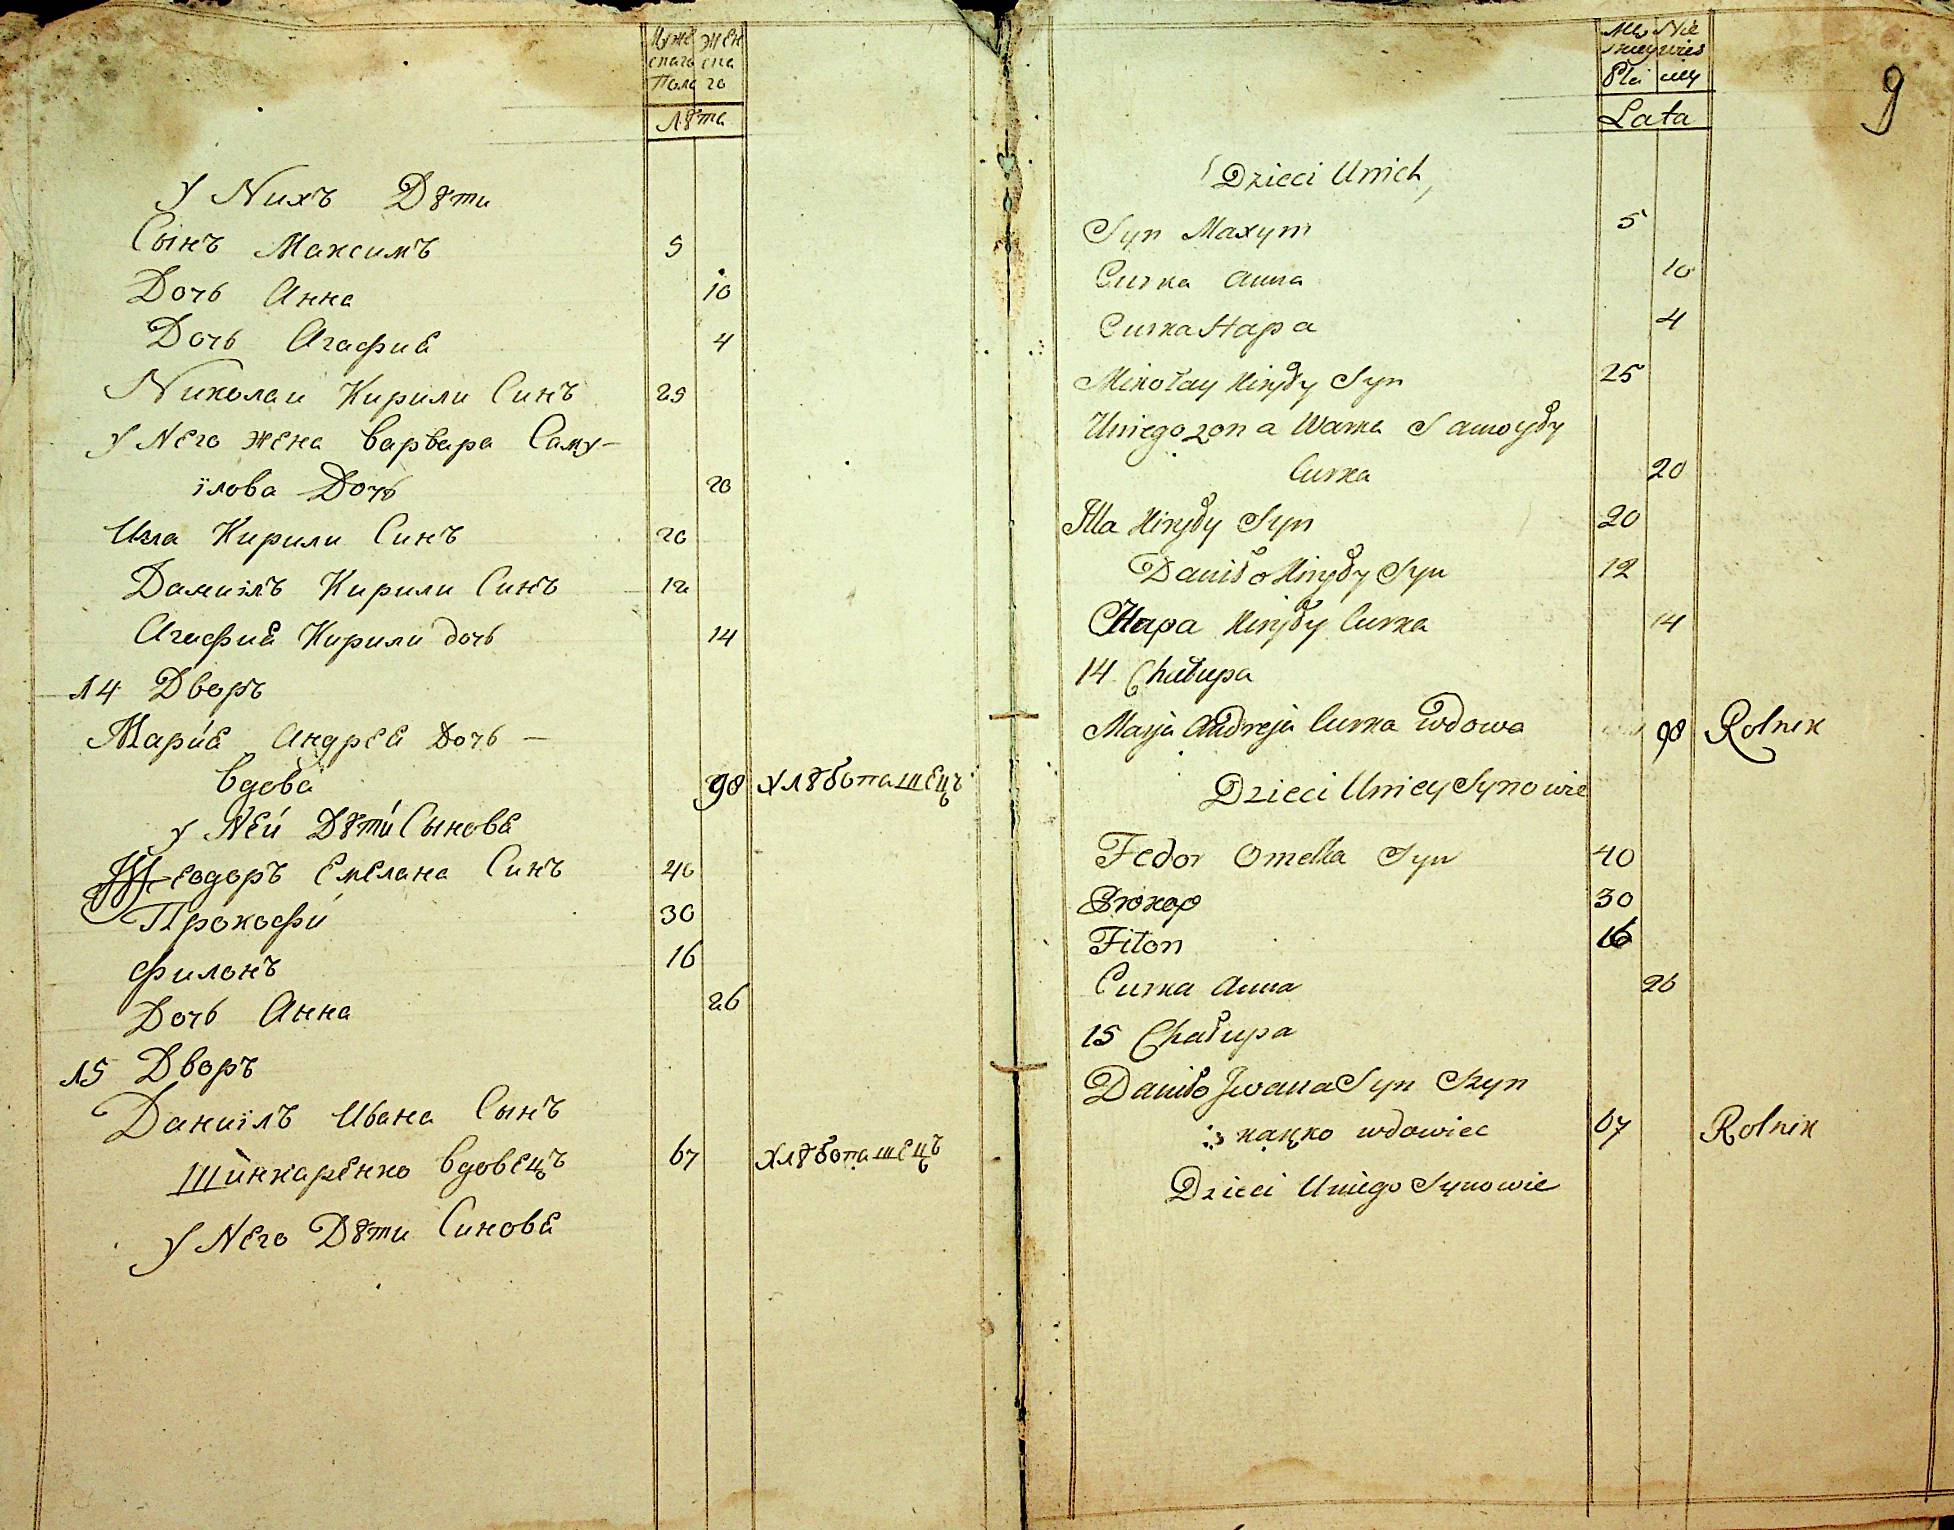 Муже Жен
скаго ска
Пола го
Лѣта
У Нихъ Дѣти
Сынъ Максимъ 5
Дочь Анна 10
Дочь Агафиѣ 4
Николаи Кирили Синъ 25
У Него Жена Варвара Саму-
їлова Дочь 20
Илла Кирили Синъ 20
Даниілъ Кирили Синъ 12
Агафиѣ Кирили дочь 14
14 Дворъ
Мариѣ Андреѣ Дочь -
Вдова 90 Хлѣбопашецъ
У Ней Дѣти Сыновѣ
Феодоръ Емелана Синъ 40
Прокофи 30
Филонъ 16
Дочь Анна 26
15 Дворъ
Даниілъ Ивана Сынъ
Шинкаренко Вдовецъ 67 Хлѣбопашецъ
У Него Дѣти Синовѣ
9
Męs Nie
skiey wies
Płci ciey
Lata
Dzieci Unich
Syn Maxym 5
Curka Anna 10
Curka Hapa 4
Mikołay Kiryły Syn 25
Uniego zona Warka Samoyły
Curka 20
Illa Kiryły Syn 20
Daniło Kiryły Syn 12
Hapa Kiryły Curka 14
14 Chałupa
Marja Andreja Curka wdowa 90 Rolnik
Dzieci Uniey Synowie
Fedor Omelka Syn 40
Prokop 30
Fiłon 16
Curka Anna 26
15 Chałupa
Daniło Jwana Syn Szyn
karęko wdowiec 67 Rolnik
Dzieci Uniego Synowie